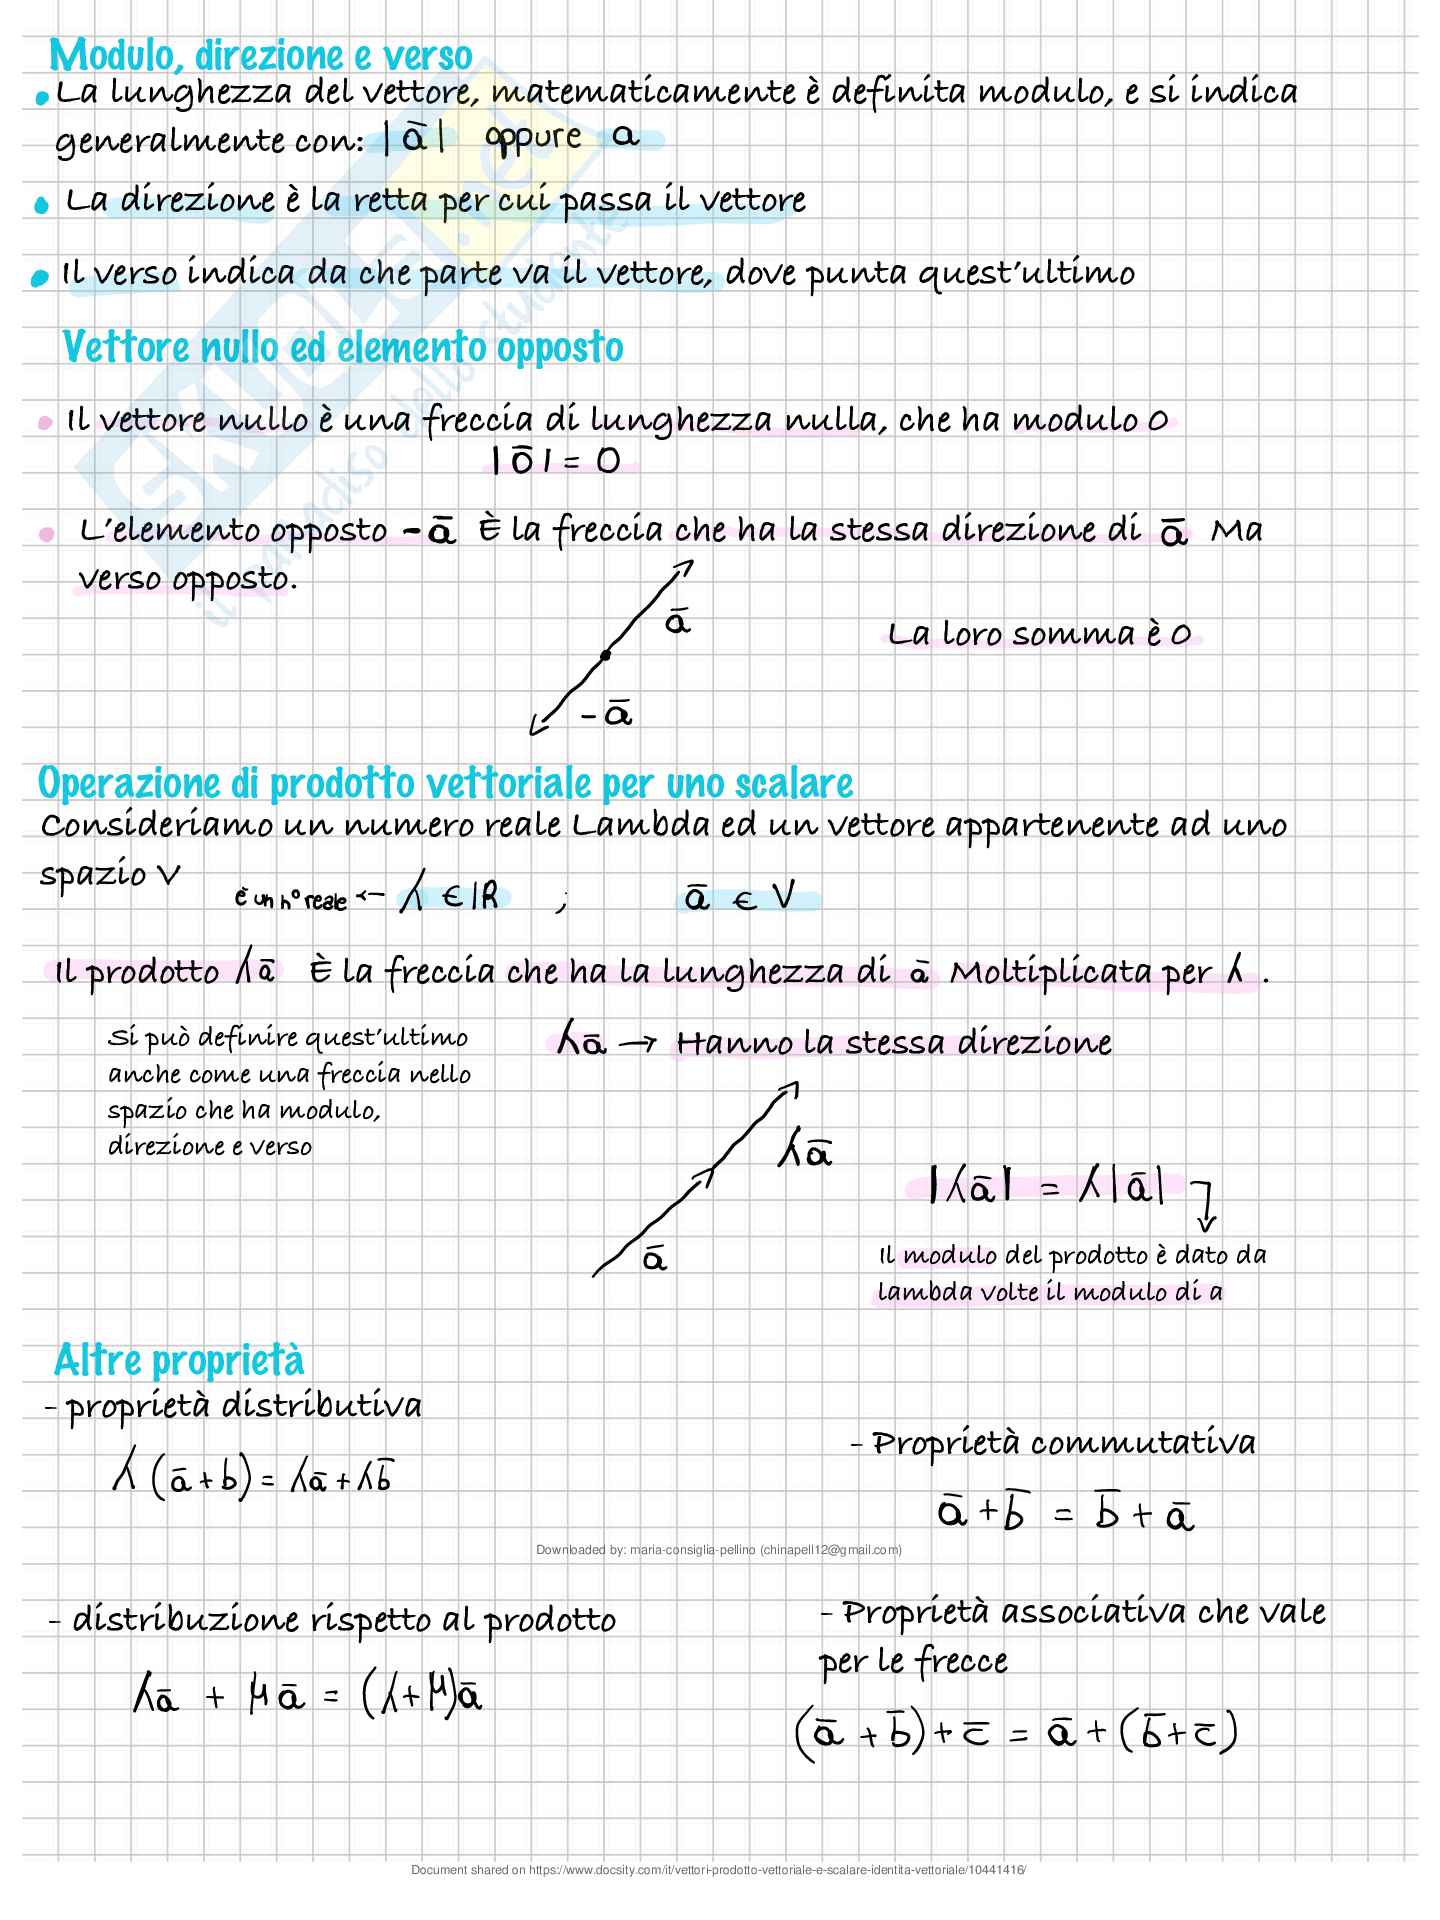 Modulo, direzione e verso
La lunghezza del vettore, matematicamente è definita modulo, e si indica
generalmente con: |ā| oppure a
La direzione è la retta per cui passa il vettore
Il verso indica da che parte va il vettore, dove punta quest'ultimo
Vettore nullo ed elemento opposto
Il vettore nullo è una freccia di lunghezza nulla, che ha modulo 0
|ō| = 0
L'elemento opposto -ā È la freccia che ha la stessa direzione di ā Ma
verso opposto.
ā
La loro somma è 0
-ā
Operazione di prodotto vettoriale per uno scalare
Consideriamo un numero reale Lambda ed un vettore appartenente ad uno
spazio V
è un n° reale ← λ ∈ ℝ ; ā ∈ V
Il prodotto λā È la freccia che ha la lunghezza di ā Moltiplicata per λ .
Si può definire quest'ultimo
anche come una freccia nello
spazio che ha modulo,
direzione e verso
λā → Hanno la stessa direzione
λā
ā
|λā| = λ|ā|
Il modulo del prodotto è dato da
lambda volte il modulo di a
Altre proprietà
- proprietà distributiva
λ (ā + b) = λā + λb̄
- Proprietà commutativa
ā + b̄ = b̄ + ā
Downloaded by: maria-consiglia-pellino (chinapell12@gmail.com)
- distribuzione rispetto al prodotto
λā + μā = (λ+μ)ā
- Proprietà associativa che vale
per le frecce
(ā + b̄) + c̄ = ā + (b̄ + c̄)
Document shared on https://www.docsity.com/it/vettori-prodotto-vettoriale-e-scalare-identita-vettoriale/10441416/
SKUOLA.net
il paradiso dello studente